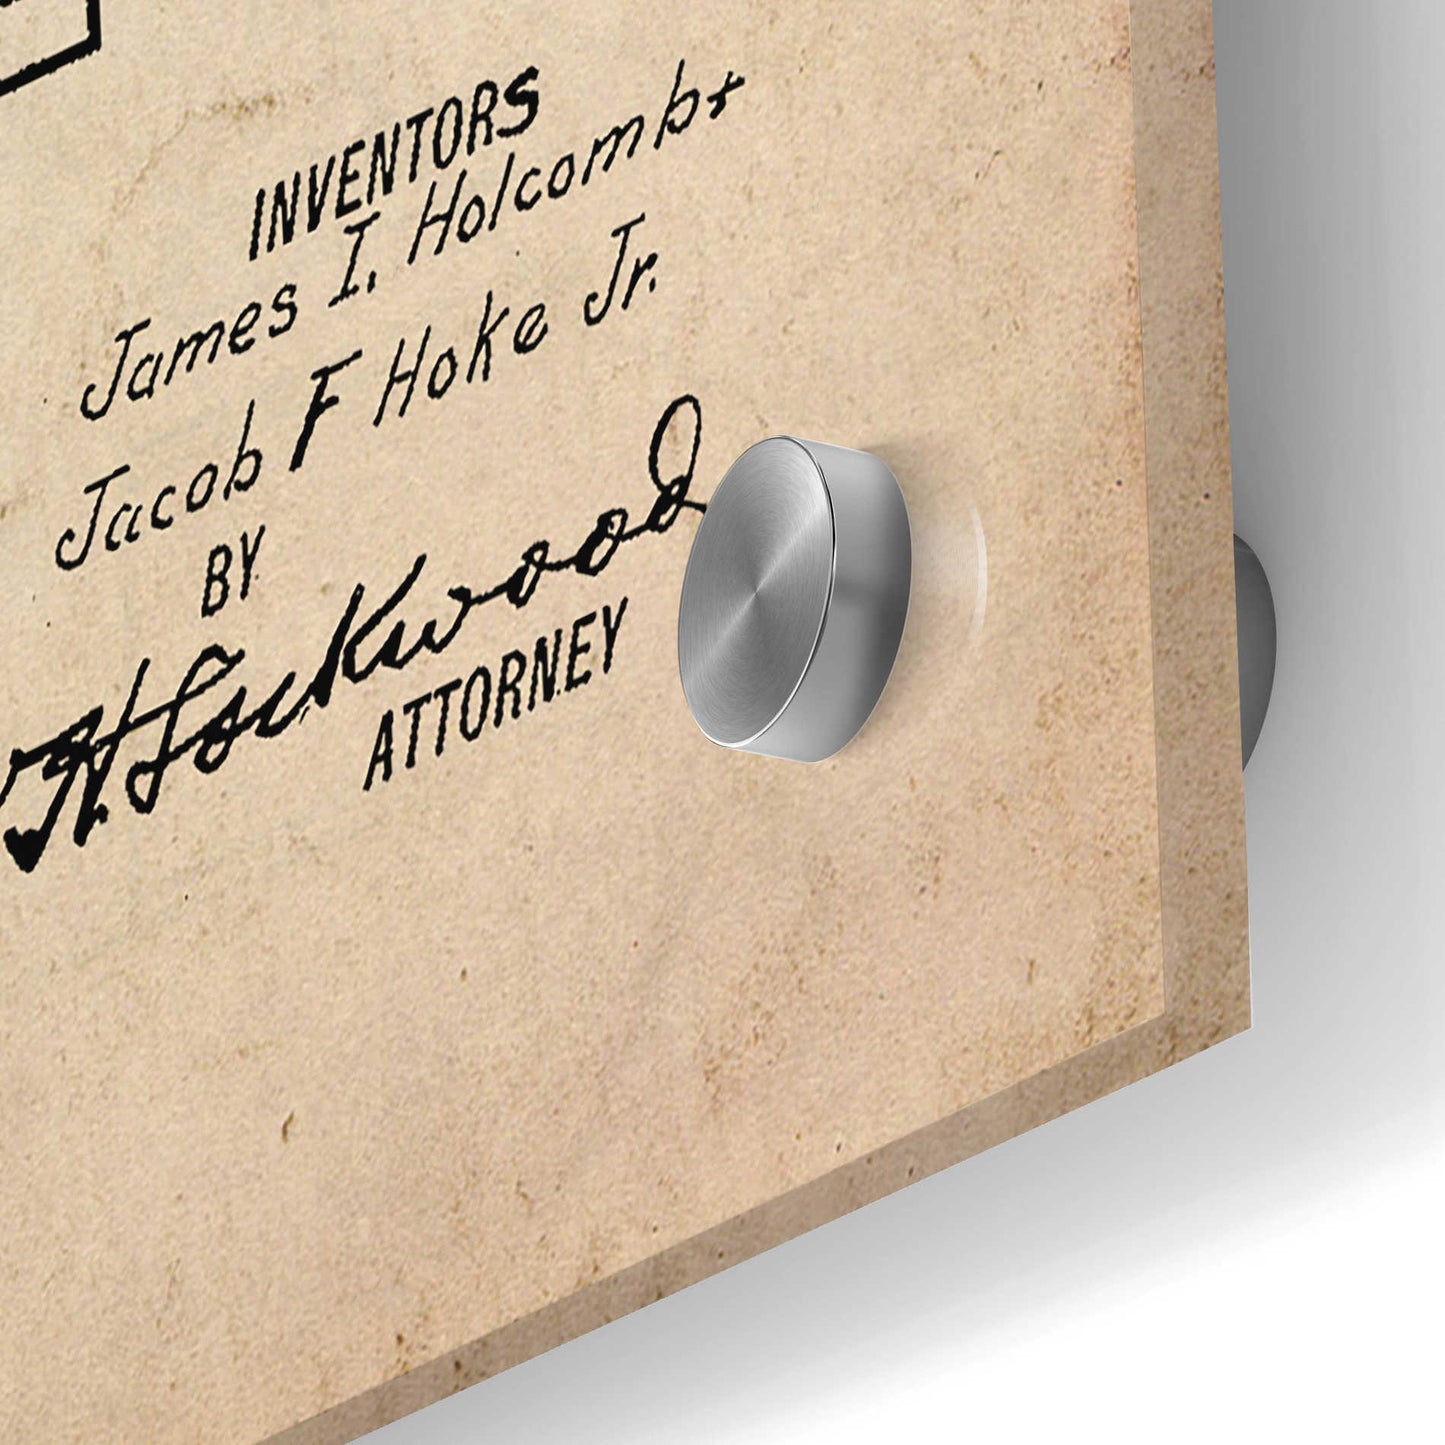 INVENTORS
James I. Holcomb +
Jacob F Hoke Jr.
BY
H. Lockwood
ATTORNEY